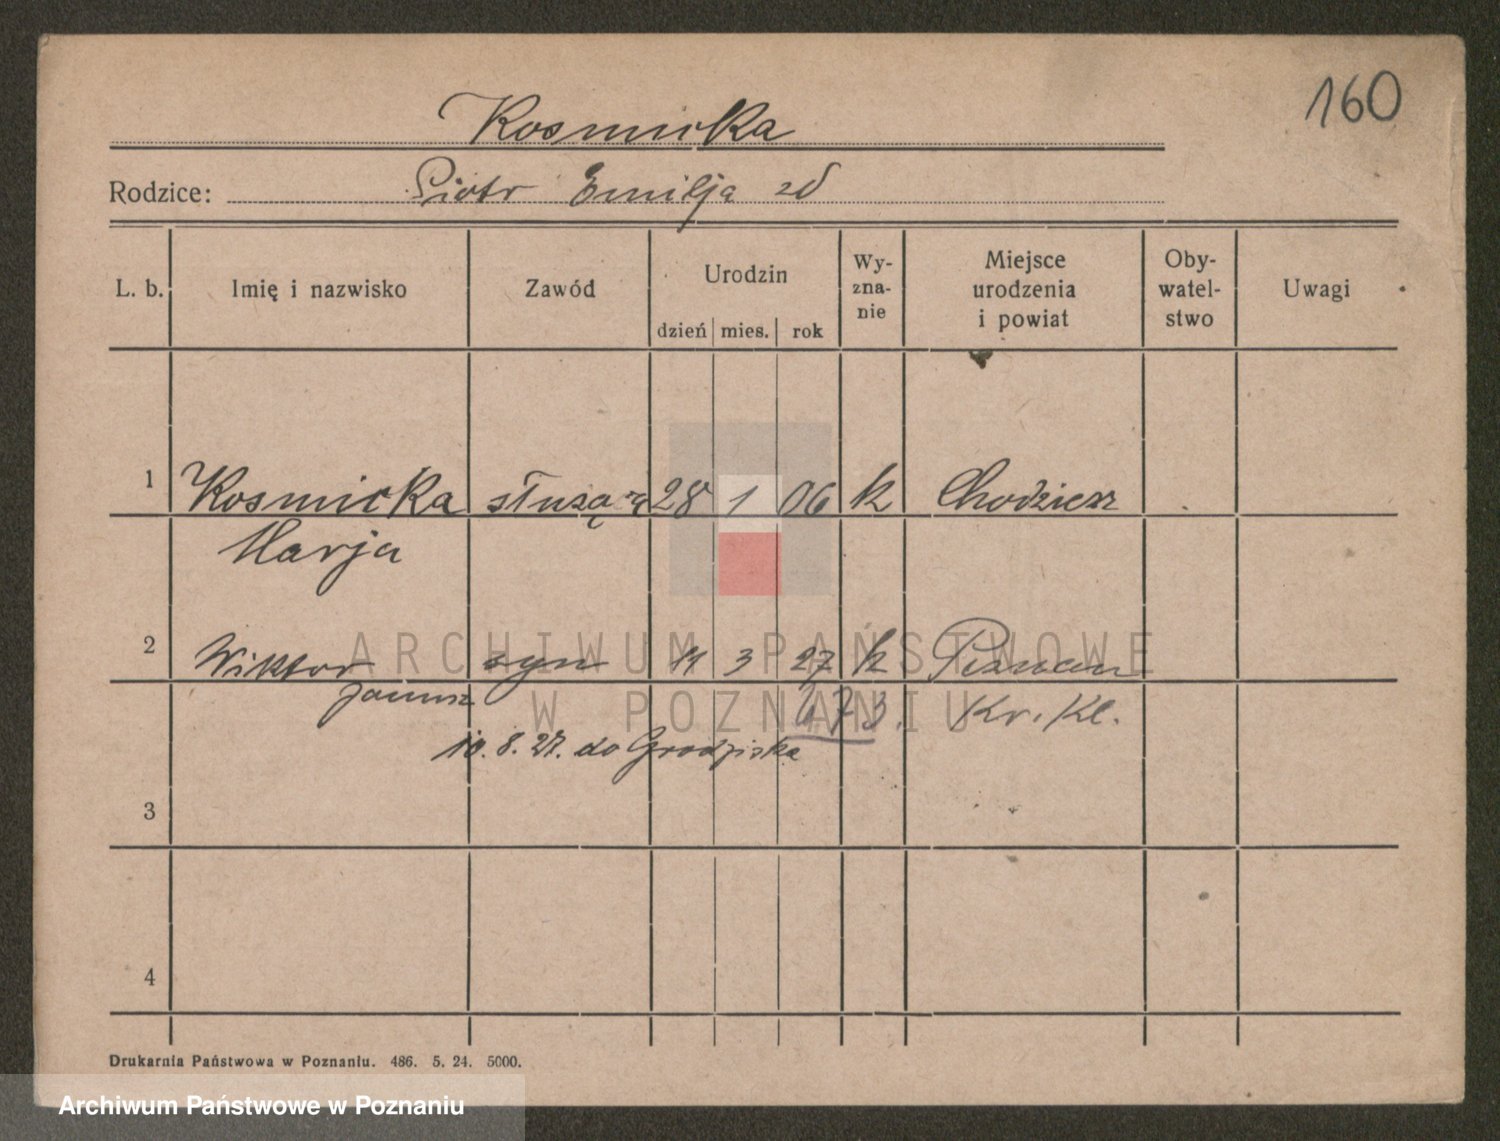 160
Kosmicka
Rodzice: Piotr Emilja zd
L. b. Imię i nazwisko Zawód Urodzin dzień mies. rok Wy-zna-nie Miejsce urodzenia i powiat Oby-watel-stwo Uwagi
1 Kosmicka służąca 28 1 06 k Chodzież
Marja
2 Wiktor syn 11 3 27 k Poznan
Janusz Kr. Kl.
10. 8. 27. do Grodziska
3
4
Drukarnia Państwowa w Poznaniu. 486. 5. 24. 5000.
ARCHIWUM PAŃSTWOWE
W POZNANIU
Archiwum Państwowe w Poznaniu